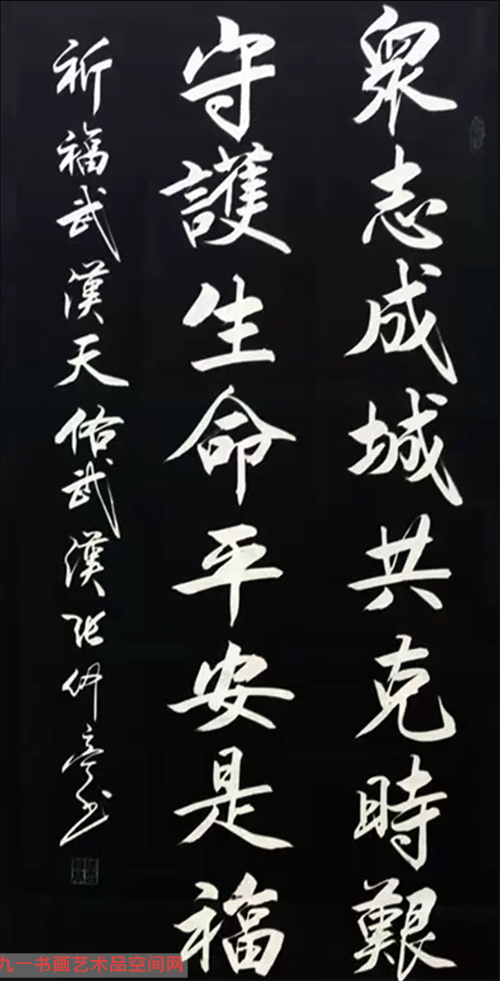 眾志成城共克時艱
守護生命平安是福
祈福武漢天佑武漢張仲亭書
九一书画艺术品空间网